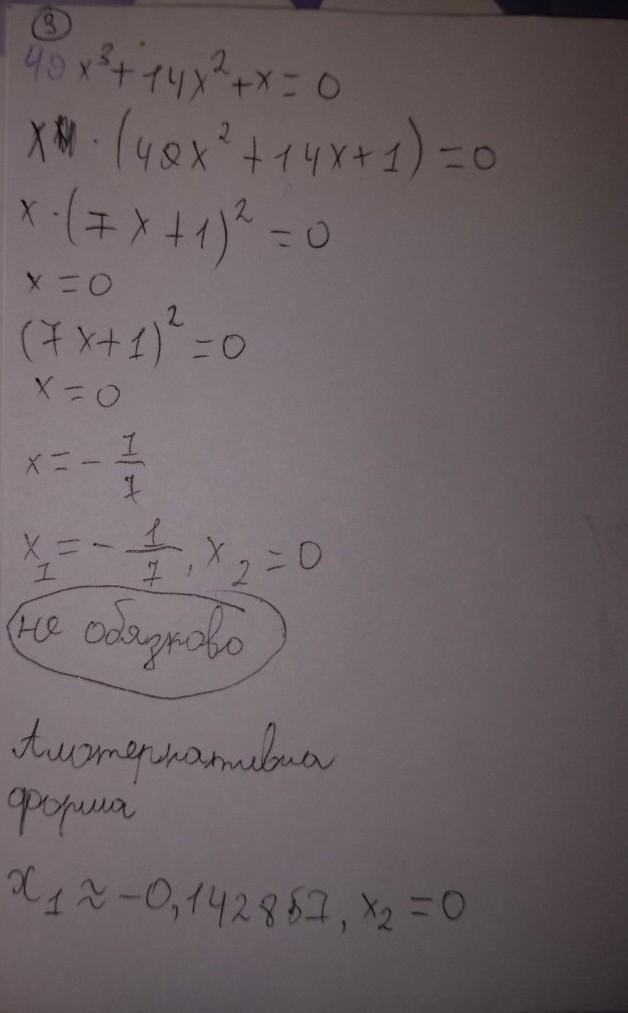 ③
49x³+14x²+x=0
x·(49x²+14x+1)=0
x·(7x+1)²=0
x=0
(7x+1)²=0
x=0
x=-1/7
x₁=-1/7, x₂=0
не обязково
Альтернативна
форма
x₁≈-0,142857, x₂=0